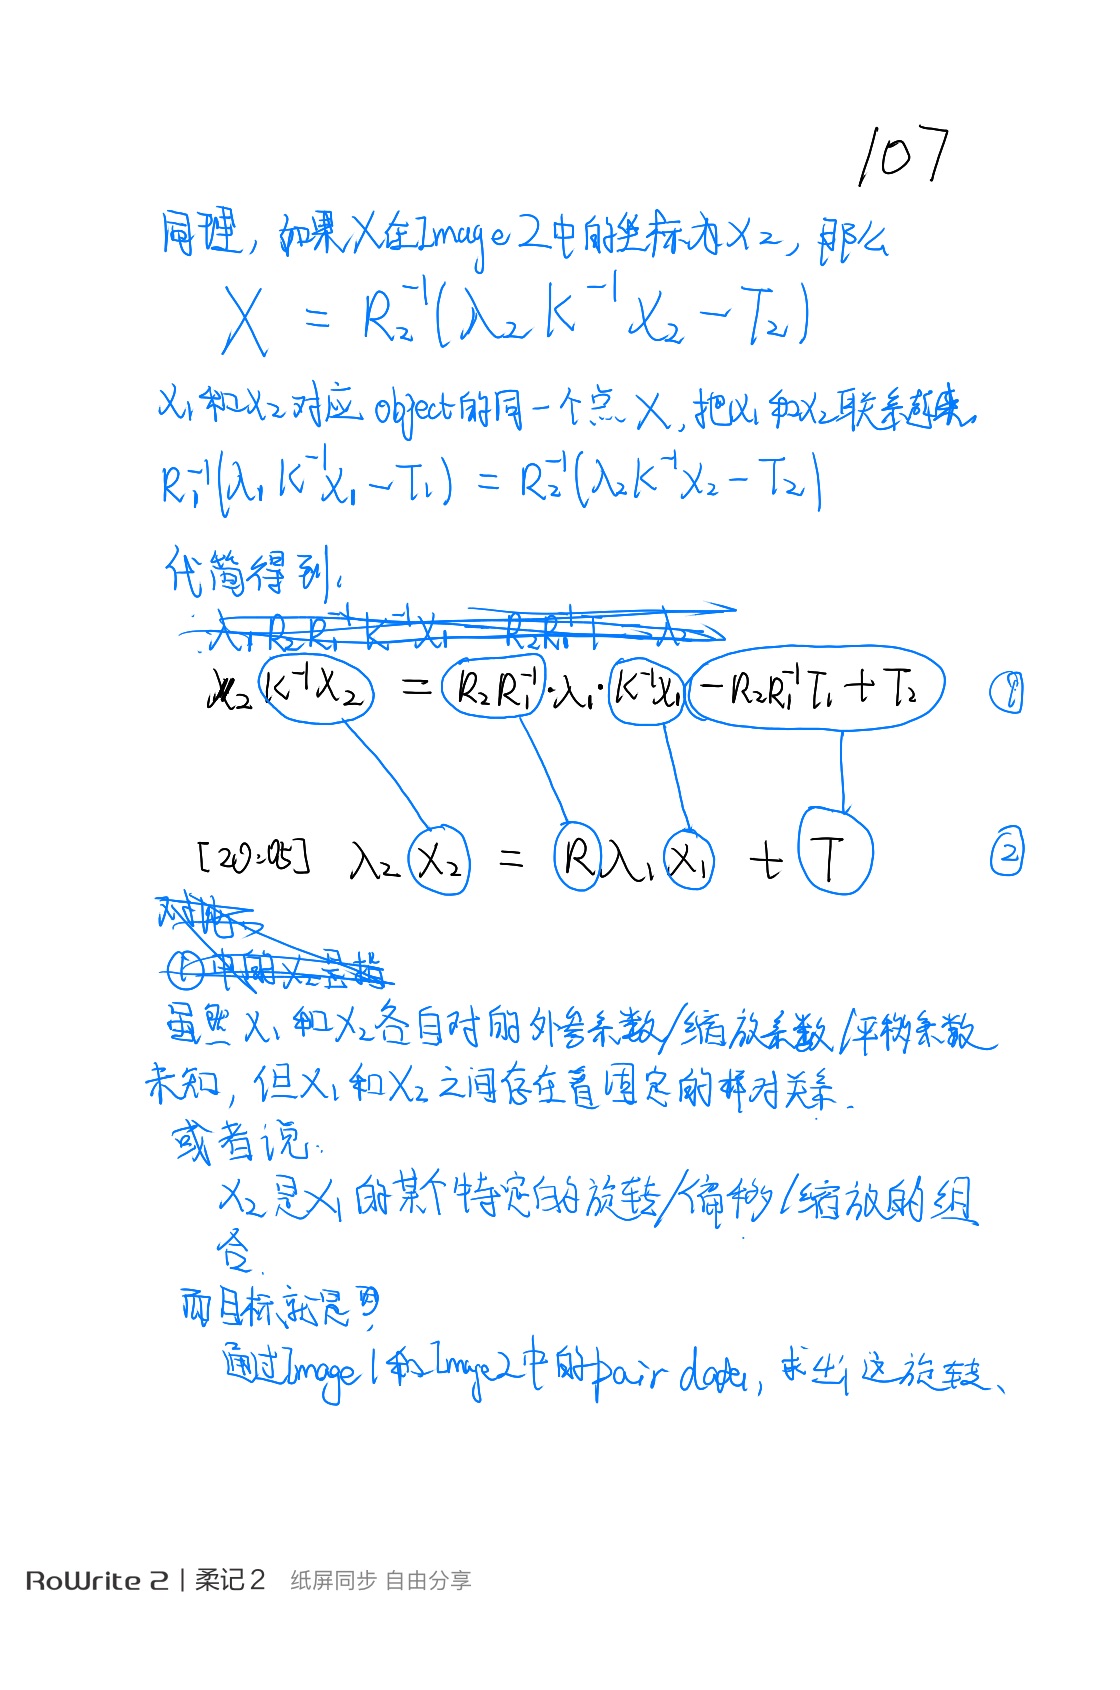 107
同理，如果X在Image2中的坐标为x₂，那么
X = R₂⁻¹(λ₂K⁻¹x₂-T₂)
x₁和x₂对应object的同一个点X，把x₁和x₂联系起来。
R₁⁻¹(λ₁K⁻¹x₁-T₁) = R₂⁻¹(λ₂K⁻¹x₂-T₂)
代简得到.
λ₂ K⁻¹x₂ = R₂R₁⁻¹·λ₁·K⁻¹x₁ -R₂R₁⁻¹T₁+T₂ ①
[20:05] λ₂ x₂ = R λ₁ x₁ + T ②
虽然x₁和x₂各自对的外参系数/缩放系数/平移系数
未知，但x₁和x₂之间存在着固定的相对关系.
或者说:
x₂是x₁的某个特定的旋转/偏移/缩放的组
合.
而目标就是
通过Image1和Image2中的pair，求出这旋转、
RoWrite 2 | 柔记2 纸屏同步 自由分享